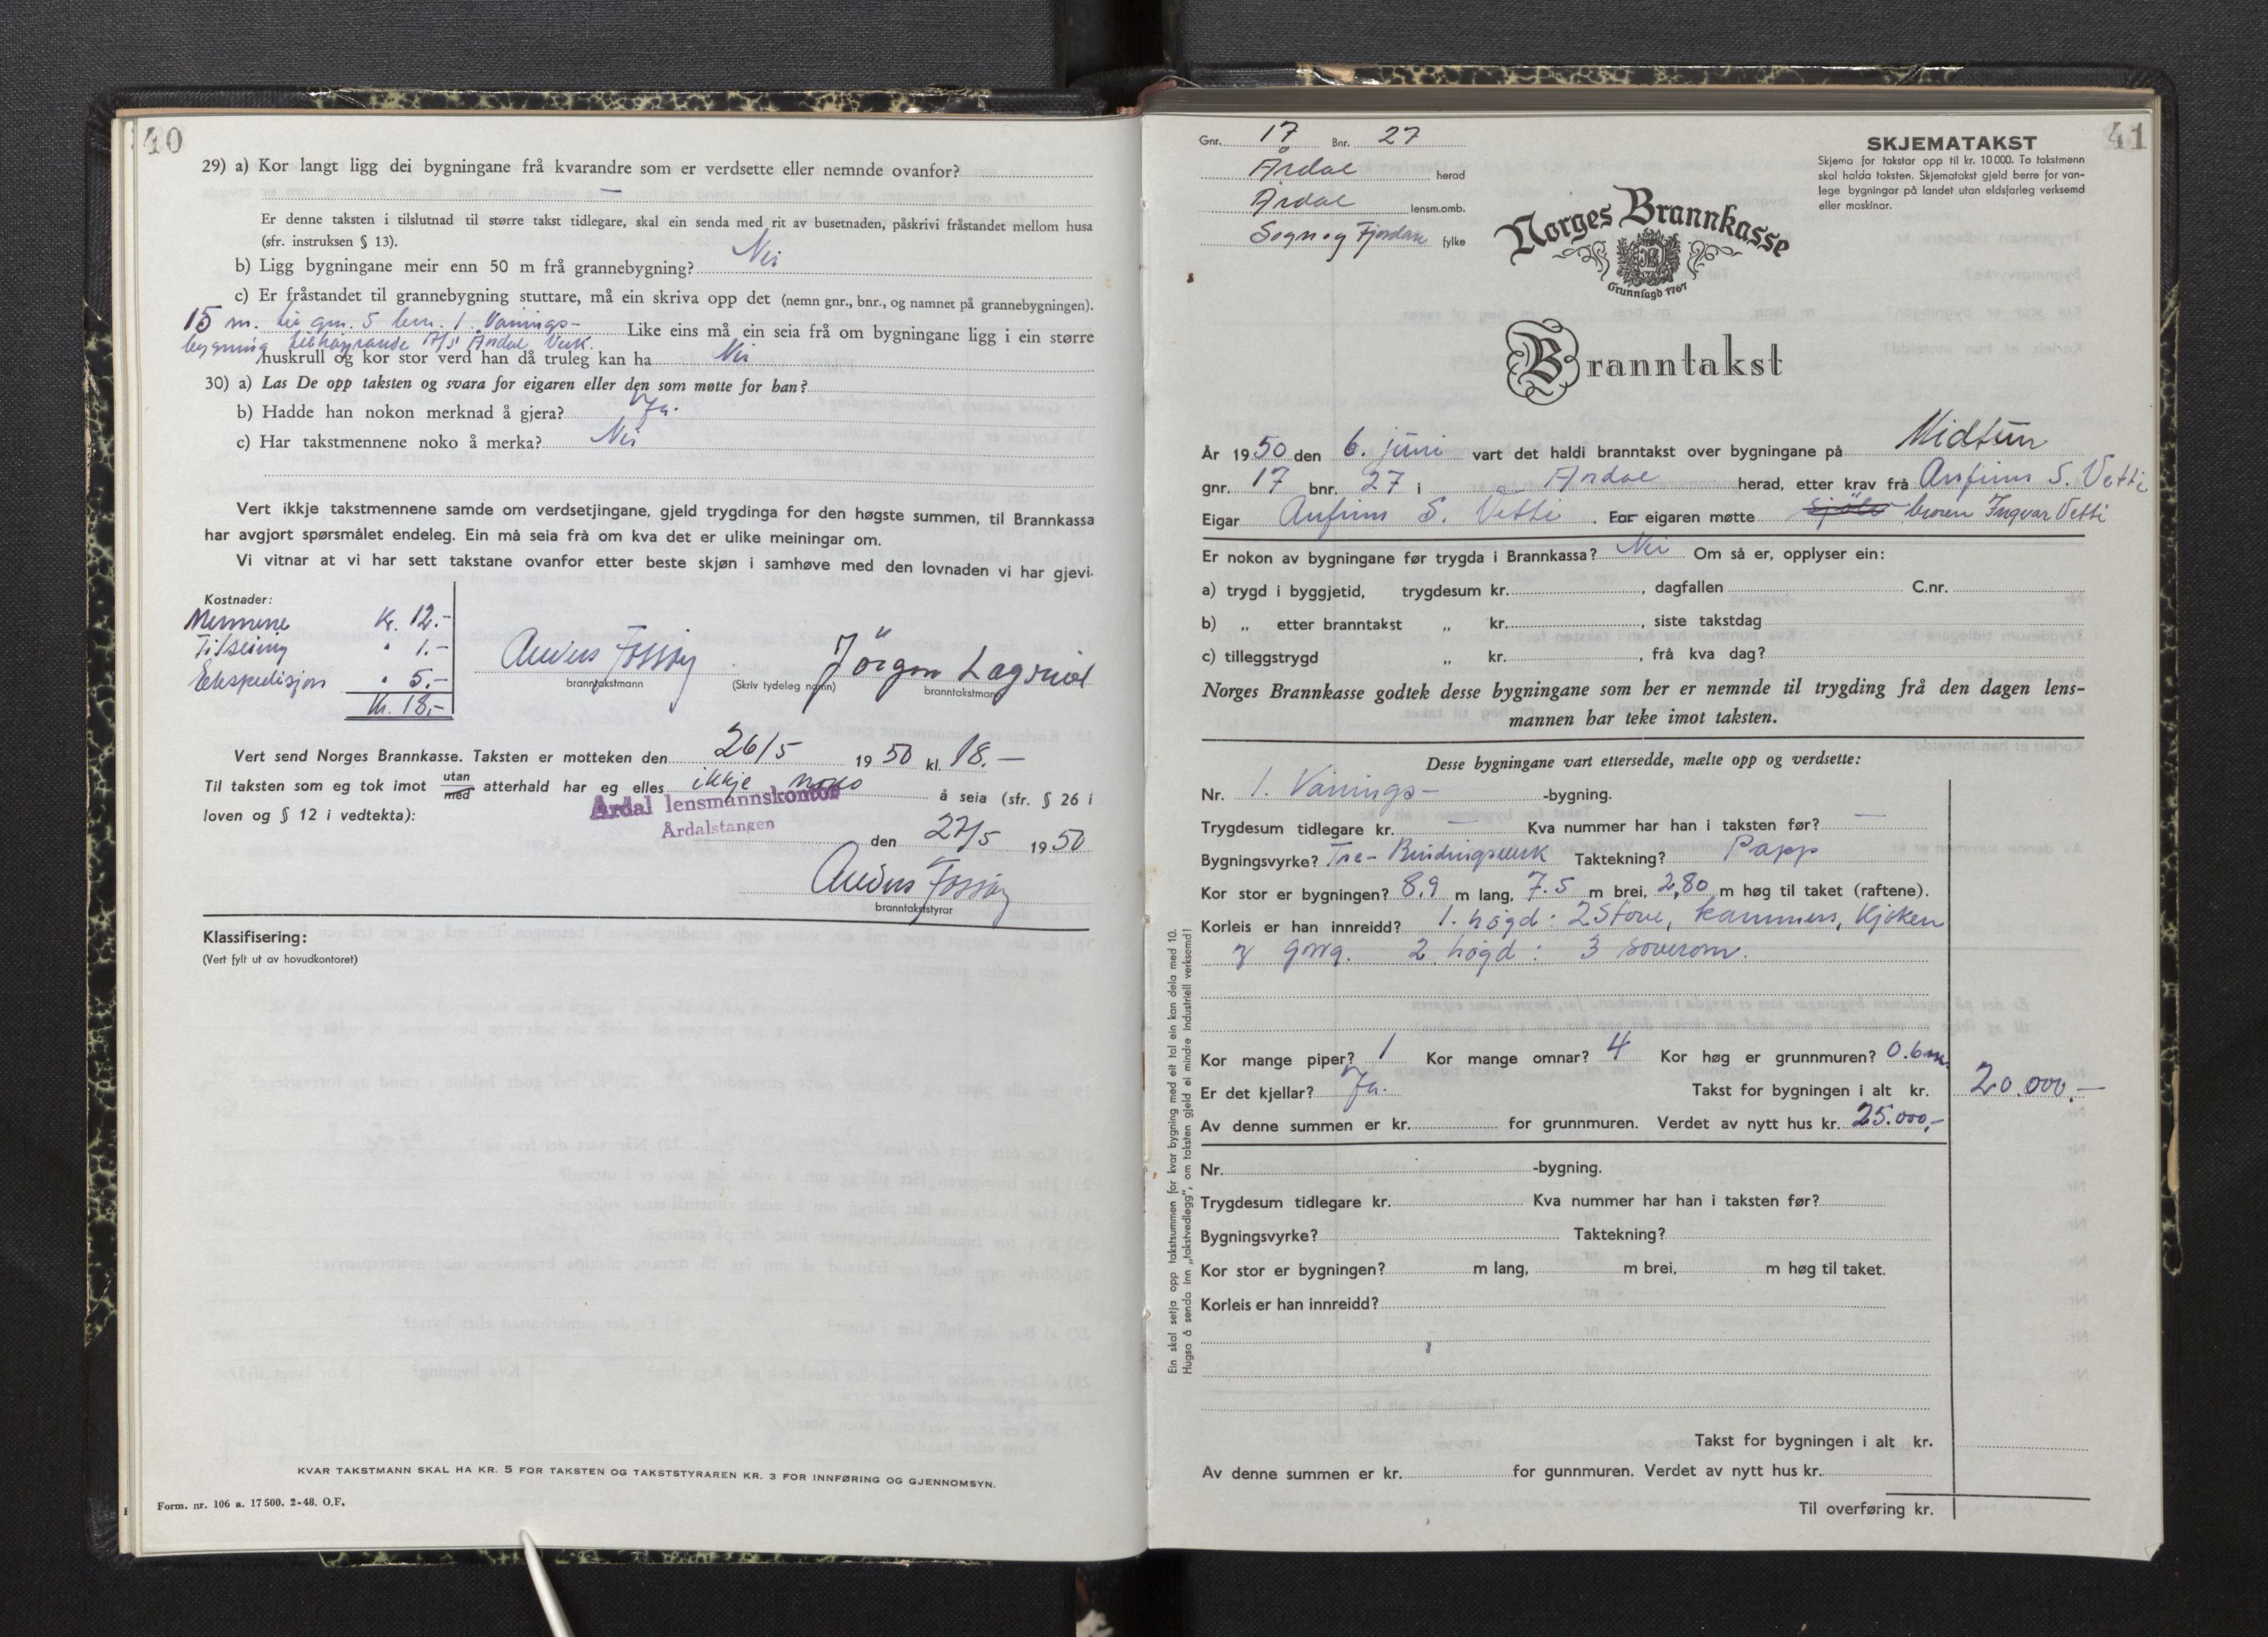 40
29) a) Kor langt ligg dei bygningane frå kvarandre som er verdsette eller nemnde ovanfor?
—
Er denne taksten i tilslutnad til større takst tidlegare, skal ein senda med rit av busetnaden, påskrivi fråstandet mellom husa
(sfr. instruksen § 13).
b) Ligg bygningane meir enn 50 m frå grannebygning? Nei
c) Er fråstandet til grannebygning stuttare, må ein skriva opp det (nemn gnr., bnr., og namnet på grannebygningen).
15 m. til gnr. 5 bnr. 1. Vånings- Like eins må ein seia frå om bygningane ligg i ein større
bygning tilhøyrande A/S Årdal Verk.
huskrull og kor stor verd han då truleg kan ha Nei
30) a) Las De opp taksten og svara for eigaren eller den som møtte for han?
b) Hadde han nokon merknad å gjera? Ja.
c) Har takstmennene noko å merka? Nei
Vert ikkje takstmennene samde om verdsetjingane, gjeld trygdinga for den høgste summen, til Brannkassa
har avgjort spørsmålet endeleg. Ein må seia frå om kva det er ulike meiningar om.
Vi vitnar at vi har sett takstane ovanfor etter beste skjøn i samhøve med den lovnaden vi har gjevi.
Kostnader:
Mennene Kr. 12.-
Tilseiing " 1.-
Ekspedisjon " 5.-
Kr. 18,-
Anders Fossøy Jörgen Lægreid
branntakstmann (Skriv tydeleg namn) branntakstmann
Vert send Norges Brannkasse. Taksten er motteken den 26/5 1950 kl. 18.—
Til taksten som eg tok imot utan med atterhald har eg elles ikkje noko å seia (sfr. § 26 i
loven og § 12 i vedtekta):
Årdal lensmannskontor
Årdalstangen
den 27/5 1950
Anders Fossøy
branntakststyrar
Klassifisering:
(Vert fylt ut av hovudkontoret)
KVAR TAKSTMANN SKAL HA KR. 5 FOR TAKSTEN OG TAKSTSTYRAREN KR. 3 FOR INNFØRING OG GJENNOMSYN.
Form. nr. 106 a. 17500. 2-48. O.F.
41
Gnr. 17 Bnr. 27
Årdal herad
Årdal lensm.omb.
Sogn og Fjordane fylke
SKJEMATAKST
Skjema for takstar opp til kr. 10 000. To takstmenn
skal halda taksten. Skjematakst gjeld berre for van-
lege bygningar på landet utan eldsfarleg verksemd
eller maskinar.
Norges Brannkasse
Grunnlagd 1767
Branntakst
År 1950 den 6. juni vart det haldi branntakst over bygningane på Midtun
gnr. 17 bnr. 27 i Årdal herad, etter krav frå Anfinn S. Vetti
Eigar Anfinn S. Vetti. For eigaren møtte sjölv broren Ingvar Vetti
Er nokon av bygningane før trygda i Brannkassa? Nei Om så er, opplyser ein:
a) trygd i byggjetid, trygdesum kr. , dagfallen C.nr.
b) „ etter branntakst „ kr. , siste takstdag
c) tilleggstrygd „ kr. , frå kva dag?
Norges Brannkasse godtek desse bygningane som her er nemnde til trygding frå den dagen lens-
mannen har teke imot taksten.
Desse bygningane vart ettersedde, mælte opp og verdsette:
Nr. 1. Vånings- -bygning.
Trygdesum tidlegare kr. — Kva nummer har han i taksten før? —
Bygningsvyrke? Tre- Bindingsverk Taktekning? Papp
Kor stor er bygningen? 8,9 m lang, 7.5 m brei, 2,80 m høg til taket (raftene).
Korleis er han innreidd? 1. högd: 2 Stove, kammers, Kjöken
og gang. 2. högd: 3 soverom.
Kor mange piper? 1 Kor mange omnar? 4 Kor høg er grunnmuren? 0.6 m.
Er det kjellar? Ja. Takst for bygningen i alt kr. 20.000,—
Av denne summen er kr. for grunnmuren. Verdet av nytt hus kr. 25.000,-
Nr. -bygning.
Trygdesum tidlegare kr. Kva nummer har han i taksten før?
Bygningsvyrke? Taktekning?
Kor stor er bygningen? m lang, m brei, m høg til taket.
Korleis er han innreidd?
Takst for bygningen i alt kr.
Av denne summen er kr. for gunnmuren. Verdet av nytt hus kr.
Til overføring kr.
Ein skal setja opp takstsummen for kvar bygning med eit tal ein kan dela med 10.
Hugsa å senda inn „takstvedlegg", om taksten gjeld ei mindre industriell verksemd!